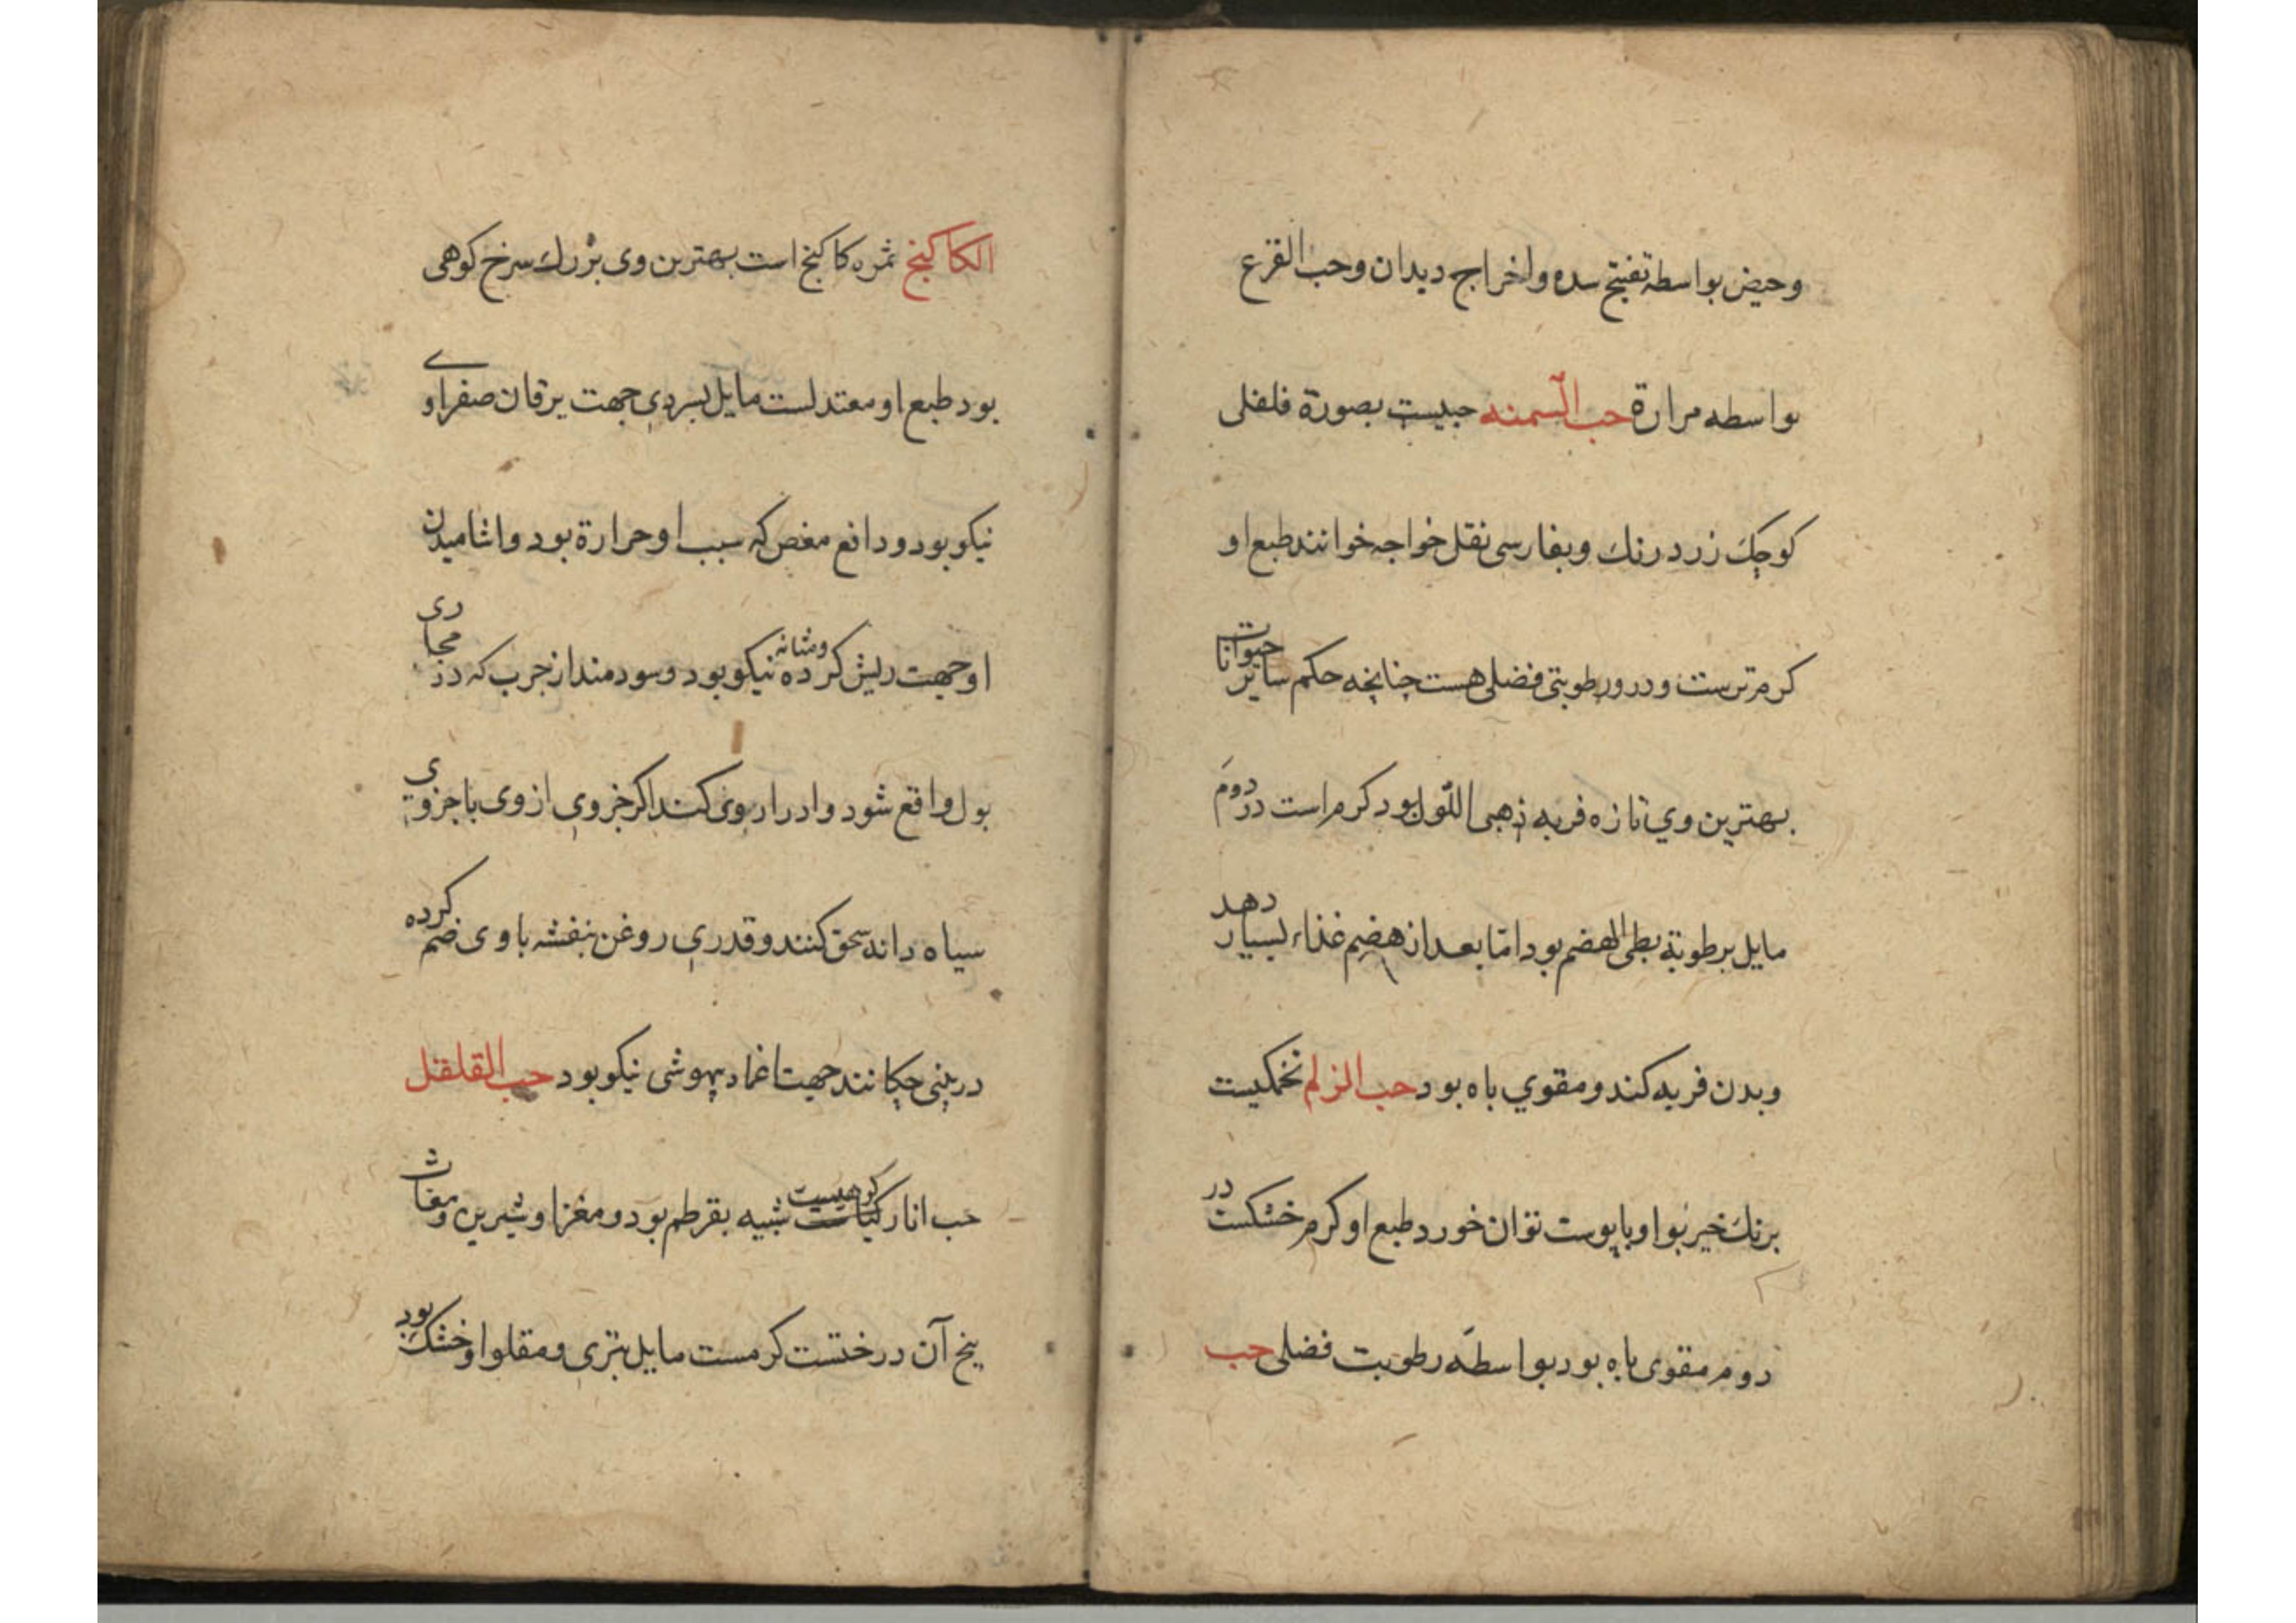 وحیض بواسطه تفتیح سده واخراج دیدان وحب القرع
بواسطه مرارة حب السمنه حبیست بصورة فلفلی
کوچک زرد رنک وبفارسی نقل خواجه خوانند طبع او
کرم ترست ودرو رطوبتی فضلی هست چنانچه حکم سایر حیوانات
بهترین وی تازه فربه ذهبی اللون بود کرم است در دوم
مایل برطوبة بطی الهضم بود امّا بعد از هضم غذاء بسیار دهد
وبدن فربه کند ومقوی باه بود حب الزلم تخمکیست
برنک خیر بوا وبا پوست توان خورد طبع او کرم خشکست در
دوم مقوی باه بود بواسطه رطوبت فضلی حب
الکاکنج ثمره کاکنج است بهترین وی بزرک سرخ کوهی
بود طبع او معتدلست مایل بسردی جهت یرقان صفراوی
نیکو بود ودافع مغص که سبب او حرارة بود واشامیدن
او جهت ریش کرده ومثانه نیکو بود وسودمند از جرب که در مجاری
بول واقع شود وادرار بوی کند اکر جزوی از وی با جزوی
سیاه دانه سحق کنند وقدری روغن بنفشه باوی ضم کرده
در بینی چکانند جهت اغماد بیهوشی نیکو بود حب القلقل
حب انار کوهیست شبیه بقرطم بود ومغز او شیرین ومغاث
بیخ آن درختست کرمست مایل بتری ومقلو او خشک بود